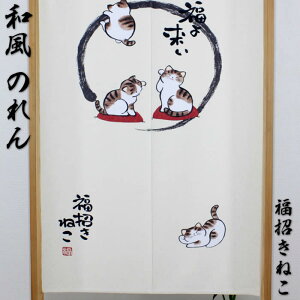 和風 のれん
福よ
来い
福招き
ねこ
福招きねこ